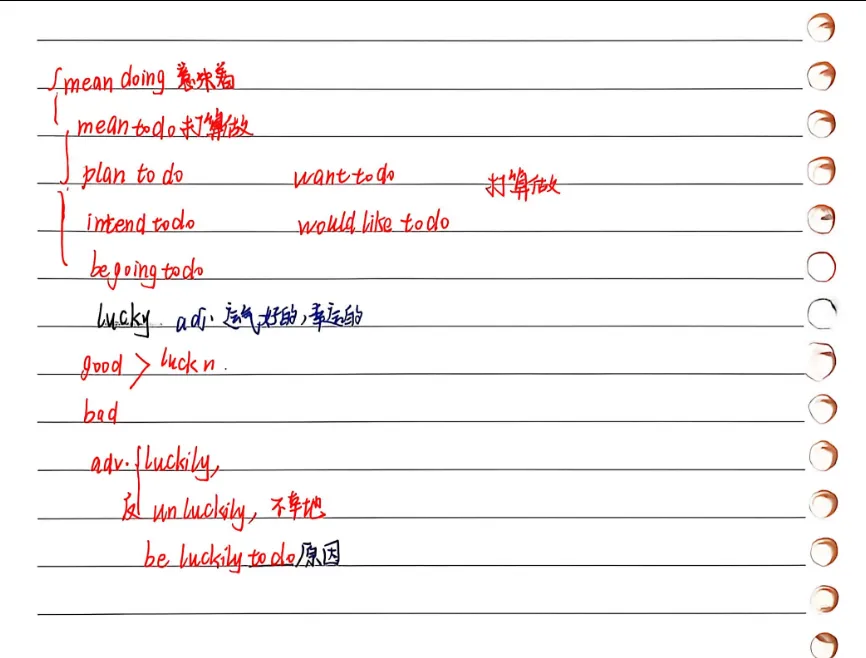 mean doing 意味着
mean to do 打算做
plan to do want to do 打算做
intend to do would like to do
be going to do
lucky. adj. 运气好的,幸运的
good > luck n.
bad
adv. { luckily,
反 unluckily, 不幸地
be luckily to do 原因